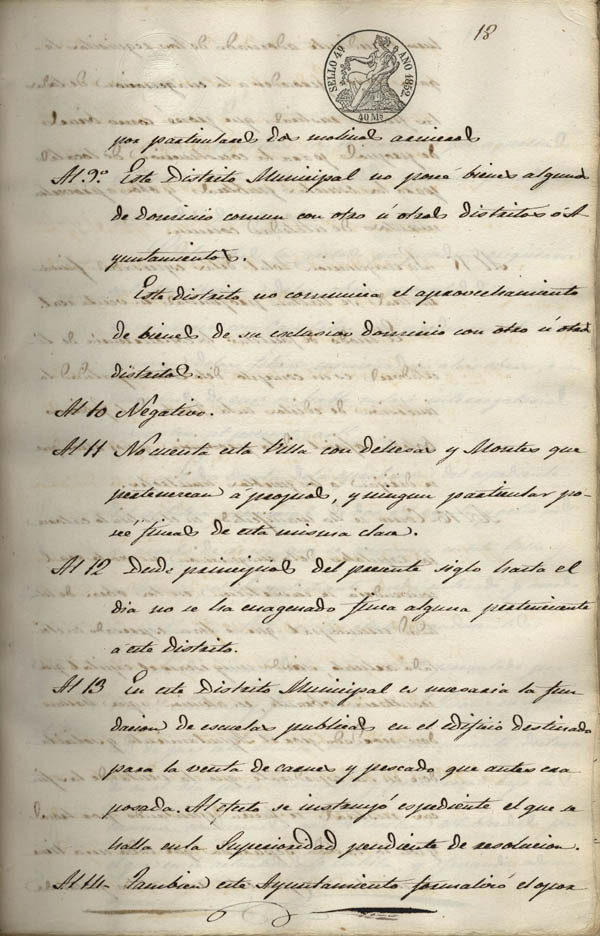 18
SELLO 4º AÑO 1852.
40 Ms
por particulares dos molinos arineros
Al 9.º Este Distrito Municipal no poseé bienes algunos
de dominio comun con otro ú otros distritos ó A-
yuntamientos.
Este distrito no comunica el aprovechamiento
de bienes de su esclusivo dominio con otro ú otros
distritos
Al 10 Negativo.
Al 11 No cuenta esta Villa con dehesas y Montes que
pertenezcan á propios, y ningun particular po-
seé fincas de esta misma clase.
Al 12 Desde principios del presente siglo hasta el
dia no se ha enagenado finca alguna perteneciente
a este distrito.
Al 13 En este Distrito Municipal es necesaria la fun
dacion de escuelas publicas en el edificio destinado
para la venta de carnes y pescado que antes era
posada. Al efecto se instruyó espediente el que se
halla en la Superioridad pendiente de resolucion.
Al 14 Tambien este Ayuntamiento formalizó el opor